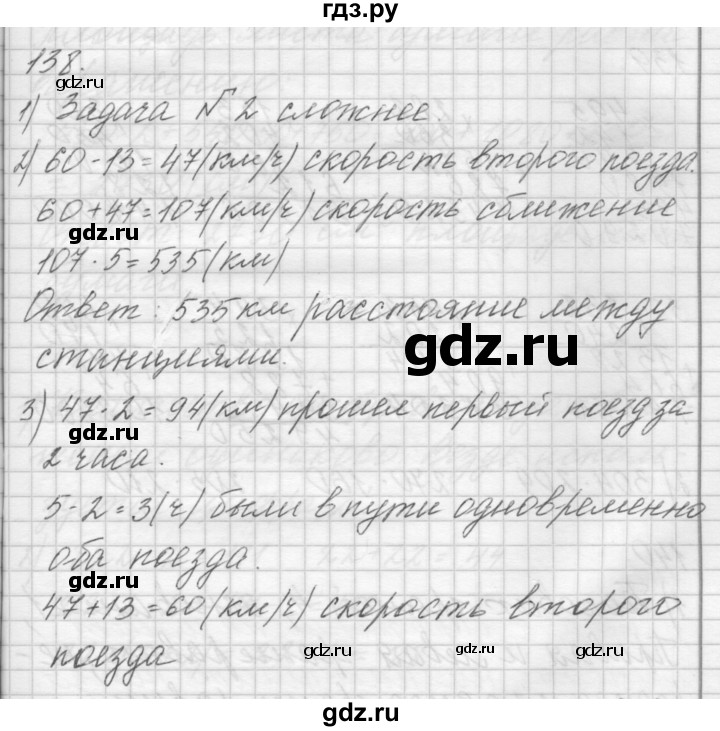 гдз.ру
138.
gdz.ru
1) Задача №2 сложнее.
2) 60-13=47(км/ч) скорость второго поезда.
60+47=107(км/ч) скорость сближение
gdz.ru
107·5=535(км)
Ответ: 535 км расстояние между
gdz.ru
станциями.
gdz.ru
3) 47·2=94(км) прошел первый поезд за
gdz.ru
2 часа.
5-2=3(ч) были в пути одновременно
gdz.ru
оба поезда.
gdz.ru
47+13=60(км/ч) скорость второго
поезда
gdz.ru
gdz.ru
gdz.ru
gdz.ru